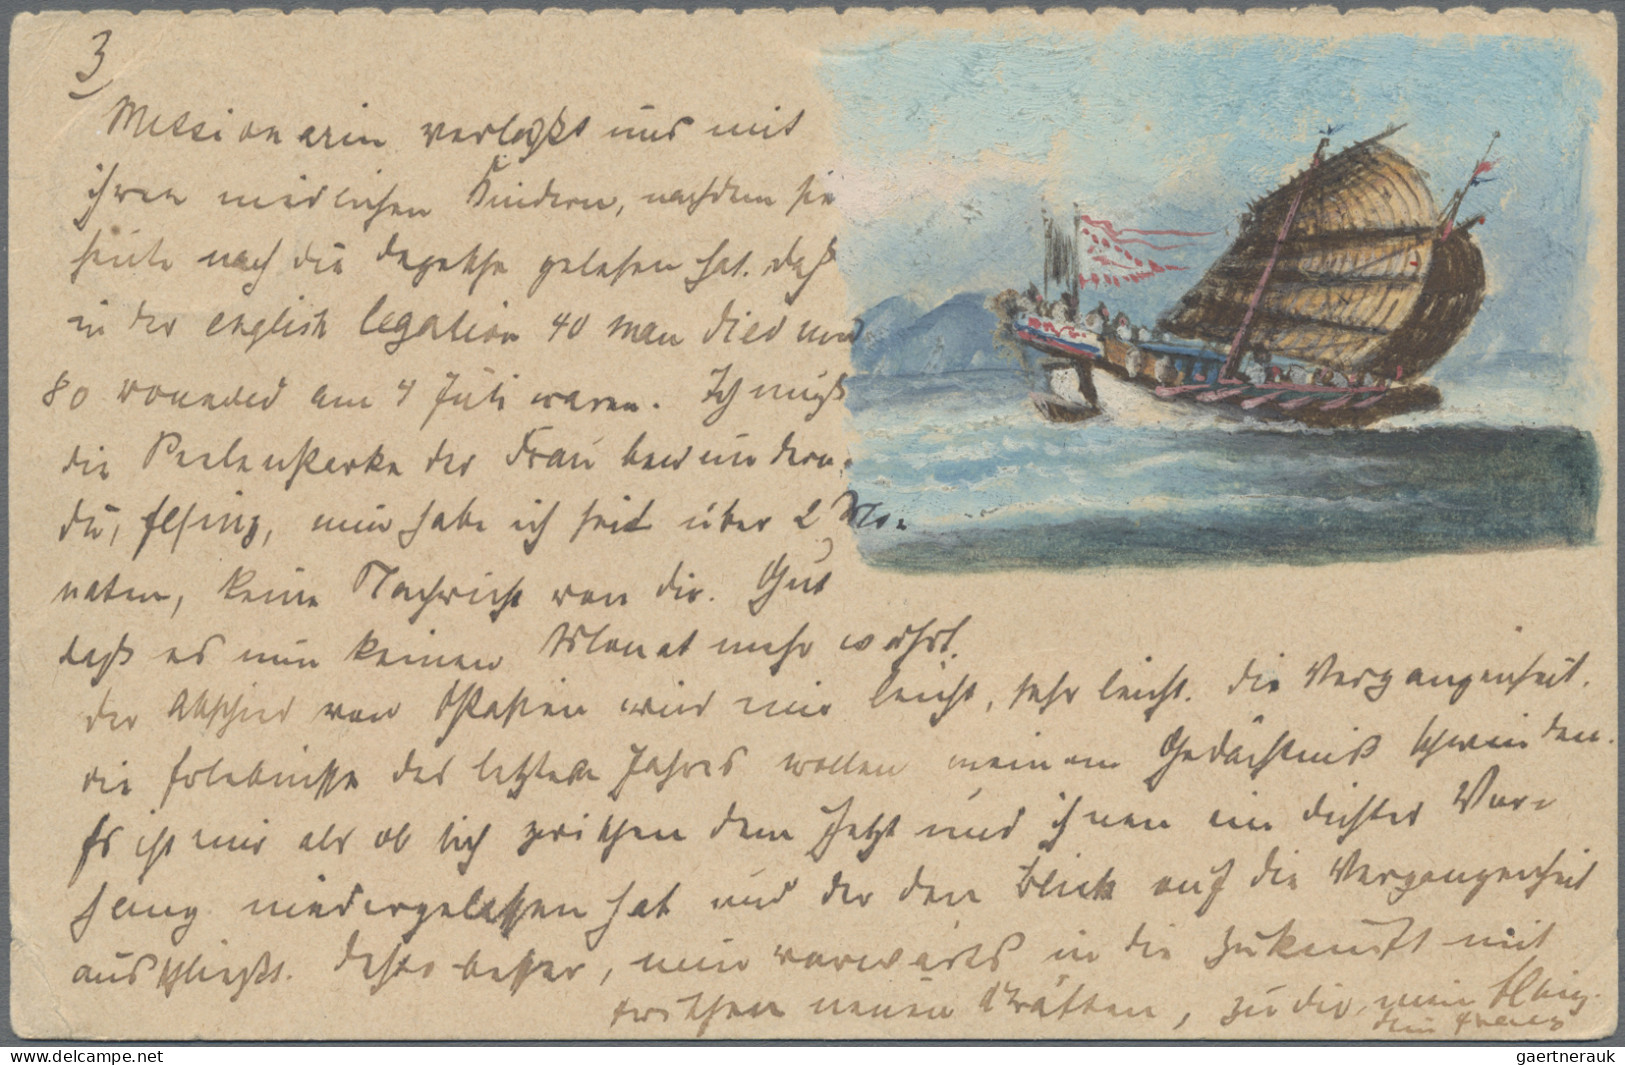 3
Missionarin verläßt uns mit
ihren niedlichen Kindern, nachdem sie
heute nach die Depesche gelesen hat. daß
in der english legation 40 man died und
80 wounded am 4 Juli waren. Ich muß
die Seelenstärke der Frau bewundern.
du, nun habe ich seit über 2 Mo-
naten, keine Nachricht von dir. Gut
daß es nun keinen Monat mehr währt.
der Abschied von Ostasien wird mir leicht, sehr leicht. die Vergangenheit.
die Erlebnisse des letzten Jahres wollen meinem Gedächtniß schwinden.
Es ist mir als ob sich zwischen dem Jetzt und ihnen ein dichter Vor-
hang niedergelassen hat und der den Blick auf die Vergangenheit
ausschließt. desto besser, nun vorwärts in die Zukunft mit
frischen neuen Kräften, zu dir, mein
dein Franz
gaertnerauk